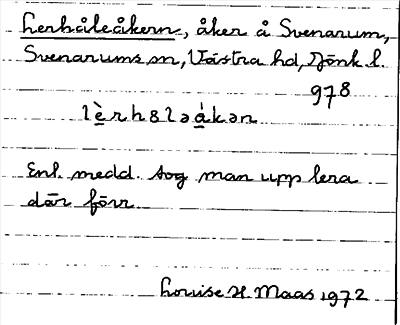 Lerhåleåkern, åker å Svenarum,
Svenarums sn, Västra hd, Jönk. l.
978
lèrhɞləa̍kən
Enl. medd. tog man upp lera
där förr.
Louise H. Maas 1972